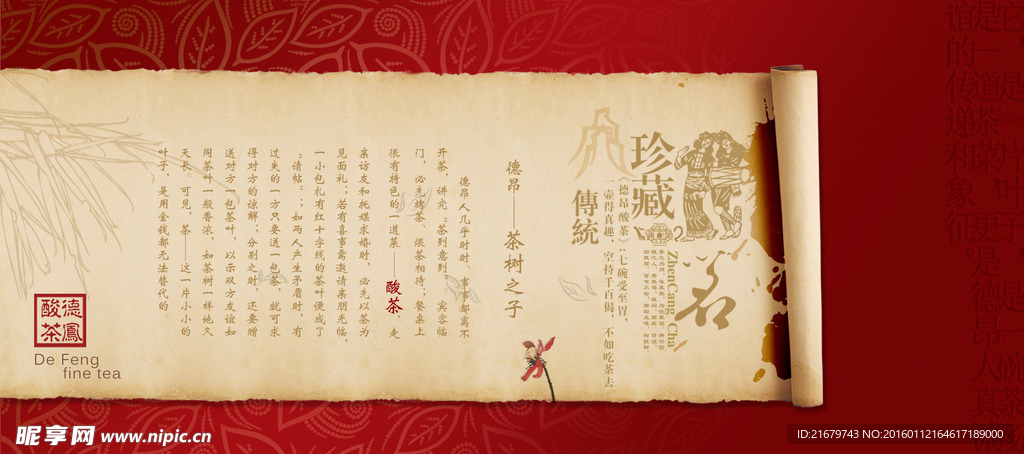 珍藏
茗
傳統
ZhenCang Cha
《德昂 酸茶》:七碗受至胃,
一壶得真趣,空持千百偈,不如吃茶去
德昂——茶树之子
德昂人几乎时时、事事都离不
开茶,讲究:“茶到意到”。宾客临
门,必先烤茶、煨茶相待;餐桌上
很有特色的一道菜——酸茶,走
亲访友和托媒求婚时,必先以茶为
见面礼;若有喜事需邀请亲朋光临,
一小包扎有红十字线的茶叶便成了
“请帖”;如两人产生矛盾时,有
过失的一方只要送一包茶,就可求
得对方的谅解;分别之时,还要赠
送对方一包茶叶,以示双方友谊如
同茶叶一般香浓,如茶树一样地久
天长。可见,茶——这一片小小的
叶子,是用金钱都无法替代的。
德鳳
酸茶
De Feng
fine tea
昵享网 www.nipic.cn
ID:21679743 NO:20160112164617189000